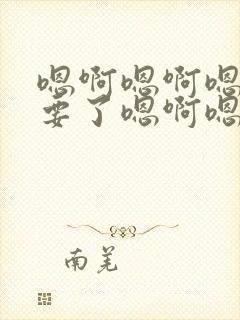 嗯啊嗯啊嗯
要了嗯啊嗯
南羌